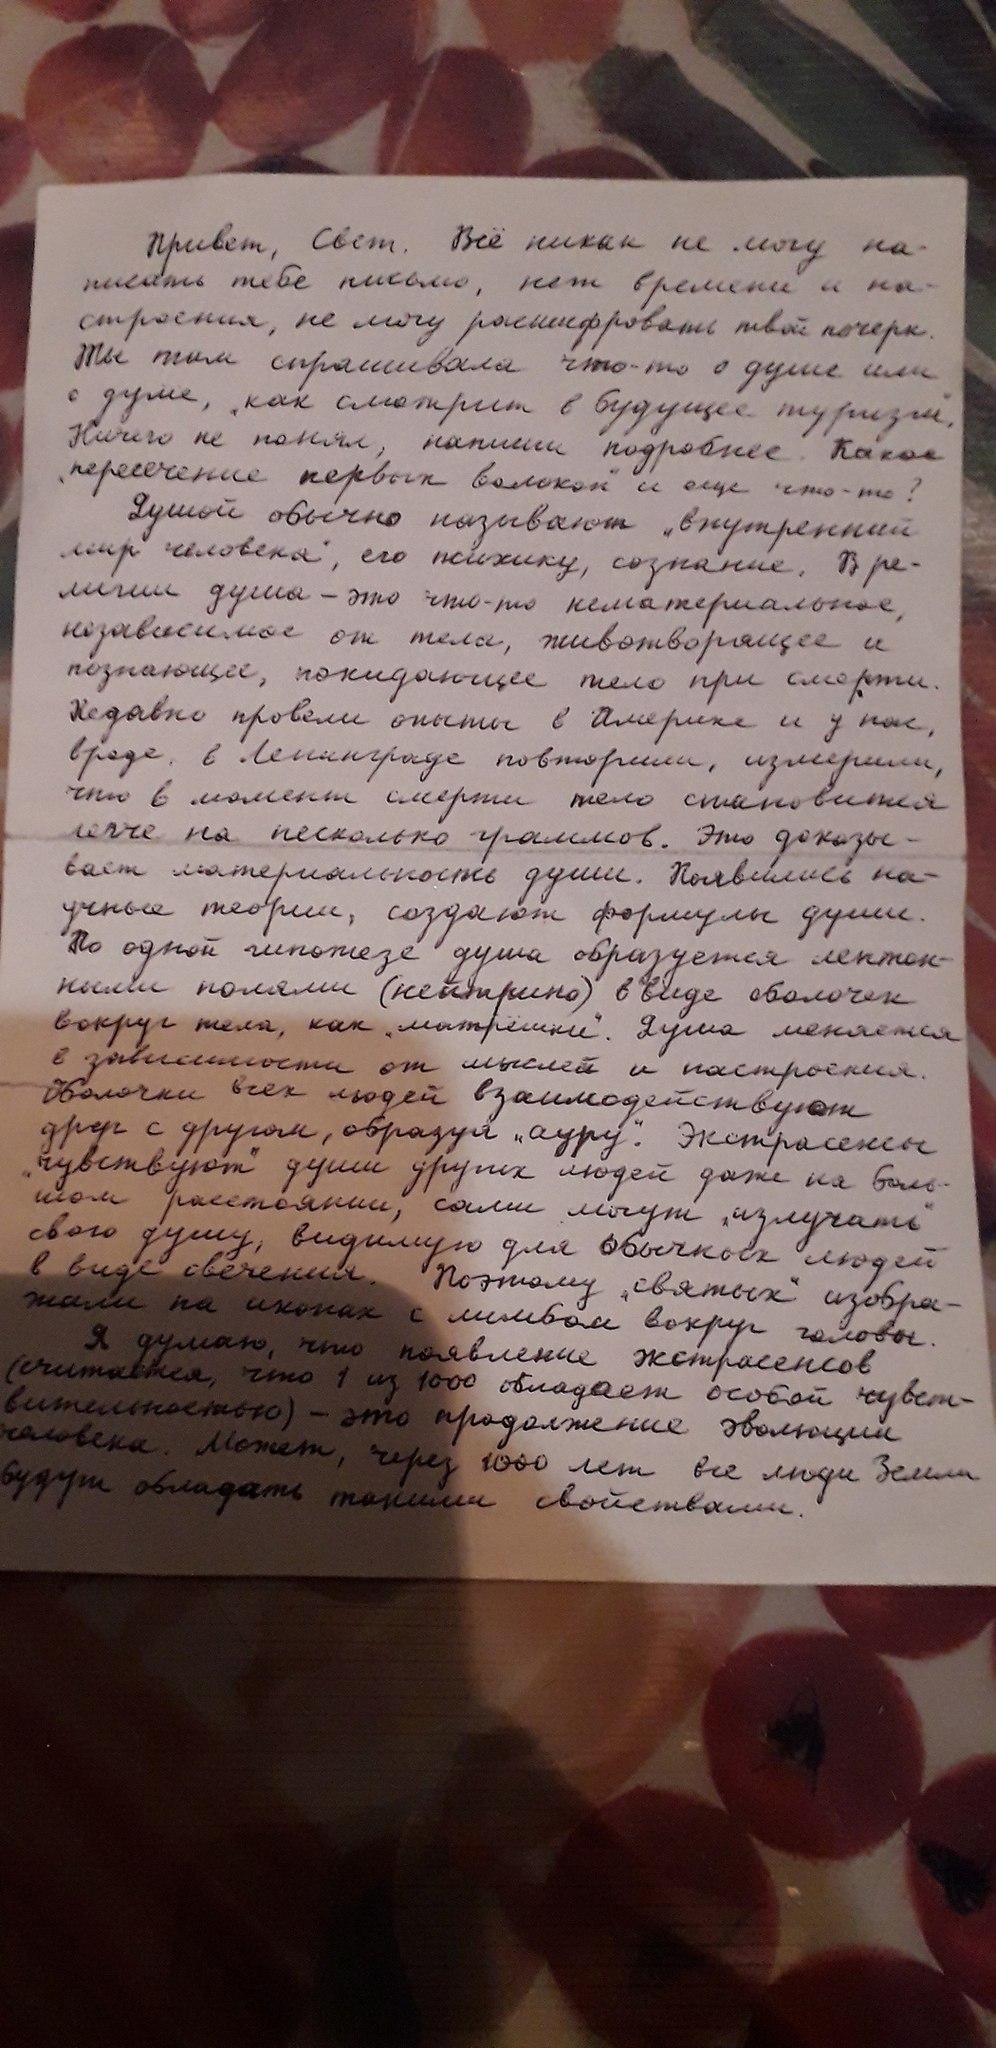 Привет, Свет. Всё никак не могу на-
писать тебе письмо, нет времени и на-
строения, не могу расшифровать твой почерк.
Ты там спрашивала что-то о душе или
о думе, „как смотрит в будущее туризм".
Ничего не понял, напиши подробнее. Какое
„пересечение первых волокон" и еще что-то?
Душой обычно называют „внутренний
мир человека", его психику, сознание. В ре-
лигии душа – это что-то нематериальное,
независимое от тела, животворящее и
познающее, покидающее тело при смерти.
Недавно провели опыты в Америке и у нас,
вроде, в Ленинграде повторили, измерили,
что в момент смерти тело становится
легче на несколько граммов. Это доказы-
вает материальность души. Появились на-
учные теории, создают формулы души.
По одной гипотезе душа образуется лептон-
ными полями (нейтрино) в виде оболочек
вокруг тела, как „матрёшки". Душа меняется
в зависимости от мыслей и настроения.
Оболочки всех людей взаимодействуют
друг с другом, образуя „ауру". Экстрасенсы
„чувствуют" души других людей даже на боль-
шом расстоянии, сами могут „излучать"
свою душу, видимую для обычных людей
в виде свечения. Поэтому „святых" изобра-
жали на иконах с нимбом вокруг головы.
Я думаю, что появление экстрасенсов
(считается, что 1 из 1000 обладает особой чувст-
вительностью) – это продолжение эволюции
человека. Может, через 1000 лет все люди Земли
будут обладать такими свойствами.